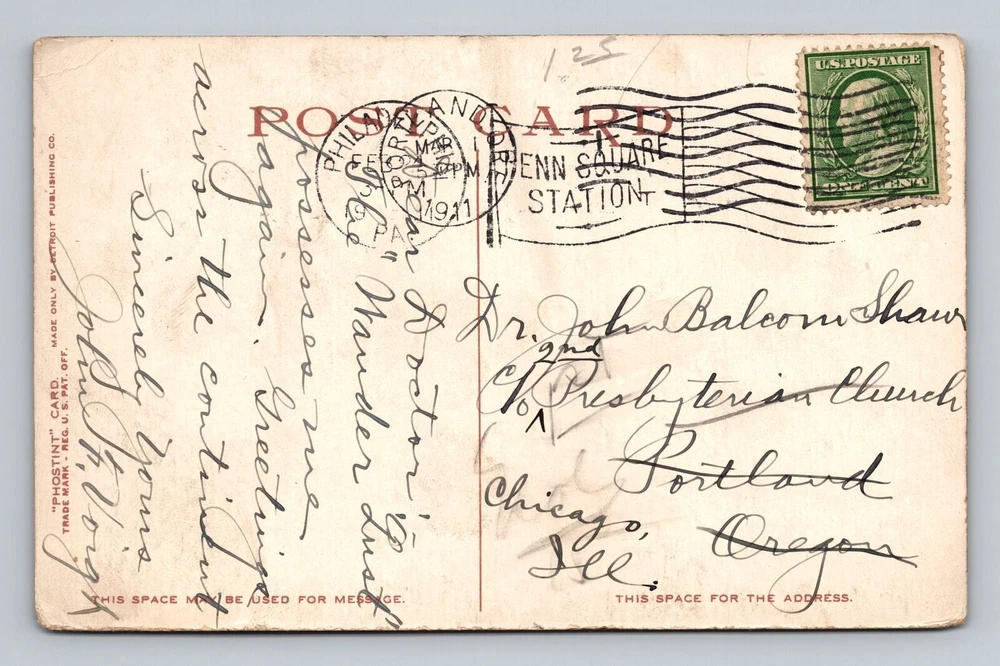 125
POST CARD
U.S. POSTAGE
ONE CENT
PHILADELPHIA
PORTLAND, ORE.
MAR
5 PM
1911
FEB
PA
PENN SQUARE
STATION
Dear Doctor,
The "Wander Lust"
possesses me
again. Greetings
across the continent
Sincerely Yours
John H. Voigt
Dr. John Balcom Shaw
2nd
C/o Presbyterian Church
Portland
Oregon
Chicago,
Ill.
"PHOSTINT" CARD. MADE ONLY BY DETROIT PUBLISHING CO.
TRADE MARK - REG. U. S. PAT. OFF.
THIS SPACE MAY BE USED FOR MESSAGE.
THIS SPACE FOR THE ADDRESS.